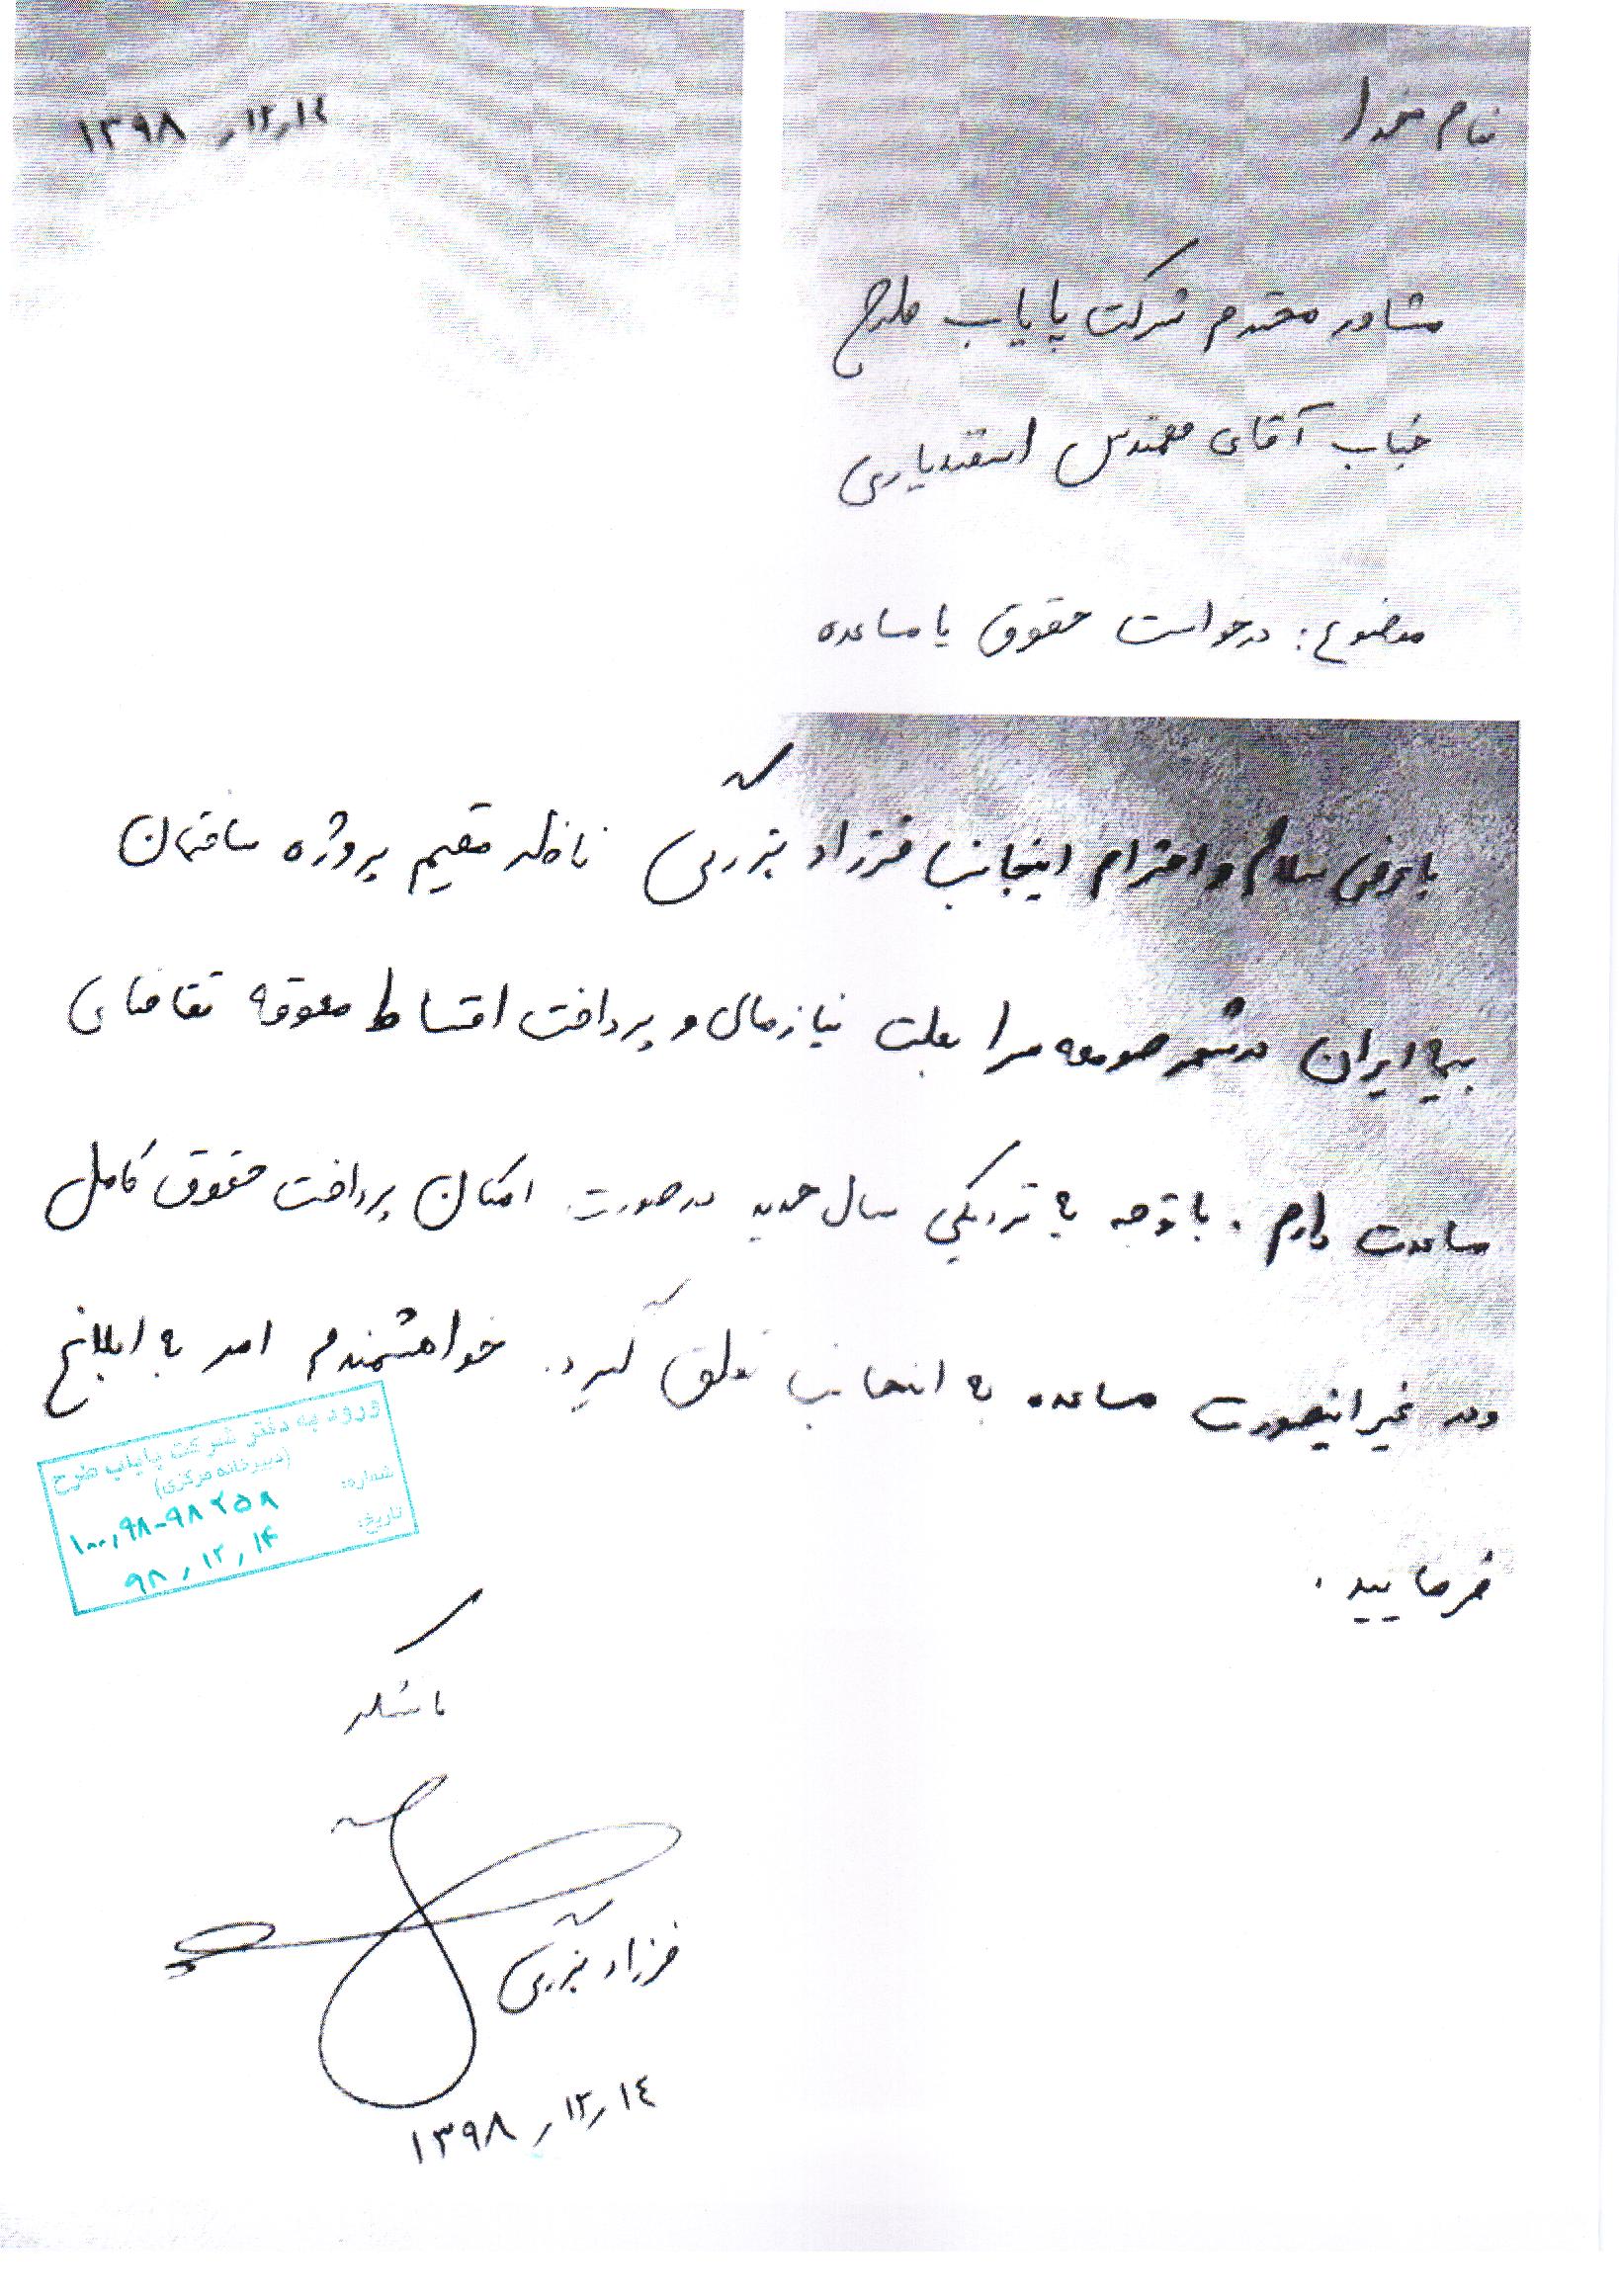 بنام خدا
۱۳۹۸/۱۲/۱٤
مشاور محترم شرکت پایاب طرح
جناب آقای مهندس اسفندیاری
موضوع: درخواست حقوق یا مساعده
با عرض سلام و احترام اینجانب فرزاد ناظر مقیم پروژه ساختمان
بیمه ایران در شهر صومعه سرا بعلت نیاز مالی و پرداخت اقساط معوقه تقاضای
مساعدت دارم. با توجه به نزدیکی سال جدید در صورت امکان پرداخت حقوق کامل
و در غیر اینصورت مساعده به اینجانب تعلق گیرد. خواهشمندم امر به ابلاغ
فرمایید.
ورود به دفتر شرکت پایاب طرح
(دبیرخانه مرکزی)
شماره: ۱۰۰/۹۸-۹۸۲۵۸
تاریخ: ۹۸/۱۲/۱۴
باتشکر
فرزاد
۱۳۹۸/۱۲/۱٤